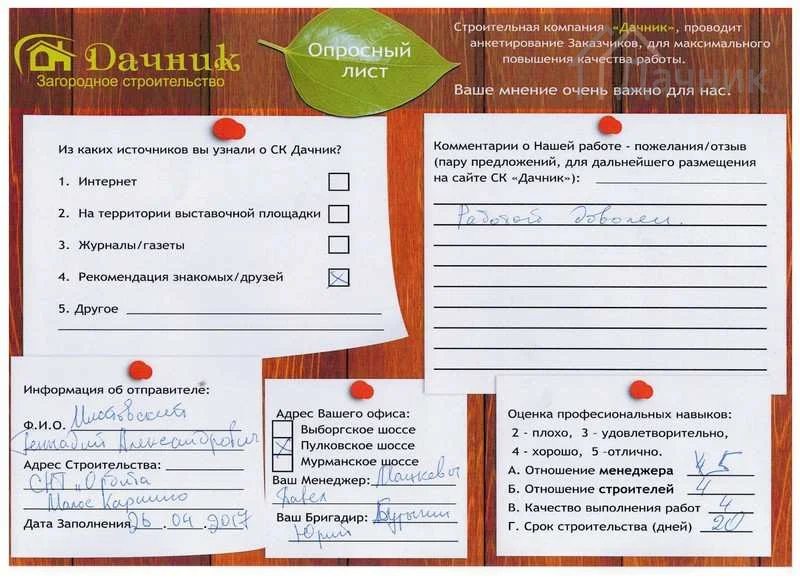 Дачник
Загородное строительство
Опросный
лист
Строительная компания «Дачник», проводит
анкетирование Заказчиков, для максимального
повышения качества работы.
Ваше мнение очень важно для нас.
Дачник
Из каких источников вы узнали о СК Дачник?
1. Интернет
2. На территории выставочной площадки
3. Журналы/газеты
4. Рекомендация знакомых/друзей
5. Другое
Комментарии о Нашей работе - пожелания/отзыв
(пару предложений, для дальнейшего размещения
на сайте СК «Дачник»):
Работой доволен.
Информация об отправителе:
Ф.И.О.
Геннадий Александрович
Адрес Строительства:
СНТ "Орбита
Малое Карлино
Дата Заполнения 26.04.2017
Адрес Вашего офиса:
Выборгское шоссе
Пулковское шоссе
Мурманское шоссе
Ваш Менеджер:
Павел
Ваш Бригадир:
Юрий
Оценка професиональных навыков:
2 - плохо, 3 - удовлетворительно,
4 - хорошо, 5 -отлично.
А. Отношение менеджера 5
Б. Отношение строителей 4
В. Качество выполнения работ 4
Г. Срок строительства (дней) 20